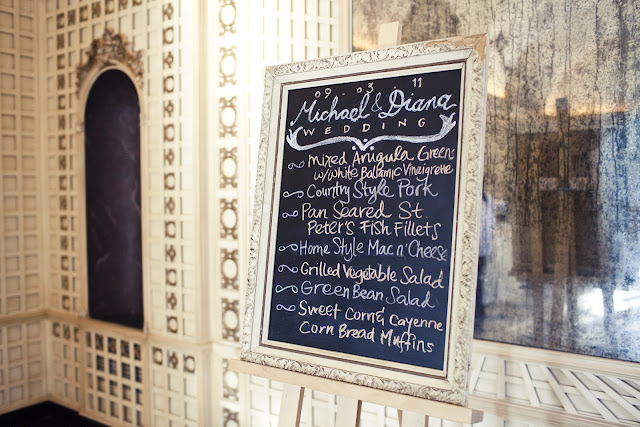 09 . 03 . 11
Michael & Diana
WEDDING
Mixed Arugula Greens
w/white Balsamic Vinaigrette
Country Style Pork
Pan Seared St.
Peter's Fish Fillets
Home Style Mac n' Cheese
Grilled Vegetable Salad
Green Bean Salad
Sweet Corn & Cayenne
Corn Bread Muffins